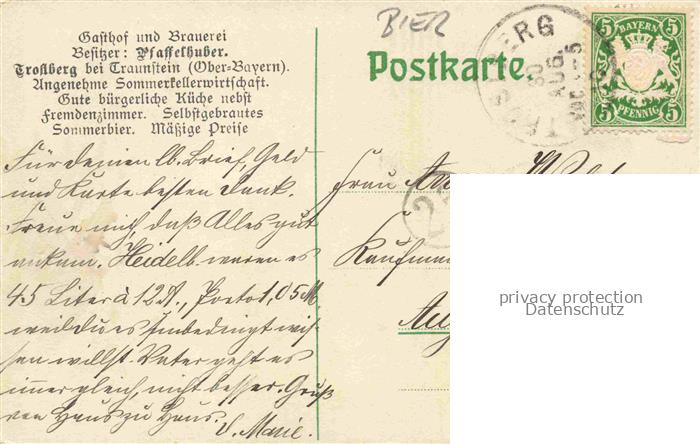 Gasthof und Brauerei
Besitzer: Pfaffelhuber.
Trostberg bei Traunstein (Ober-Bayern).
Angenehme Sommerkellerwirtschaft.
Gute bürgerliche Küche nebst
Fremdenzimmer. Selbstgebrautes
Sommerbier. Mäßige Preise
BIER
Postkarte.
BERG
30
AUG.
BAYERN
5 5
5 PFENNIG 5
Für deinen lb. Brief, Geld
und Karte besten Dank.
Freue mich, daß Alles gut
ankam. Heidelb. waren es
45 Liter à 12 , Porto 1,05 M.
weil du es Unbedingt wis-
sen willst. Vater geht es
immer gleich, nicht besser. Gruß
von Haus zu Haus.
Marie.
Frau
Kaufmann
privacy protection
Datenschutz